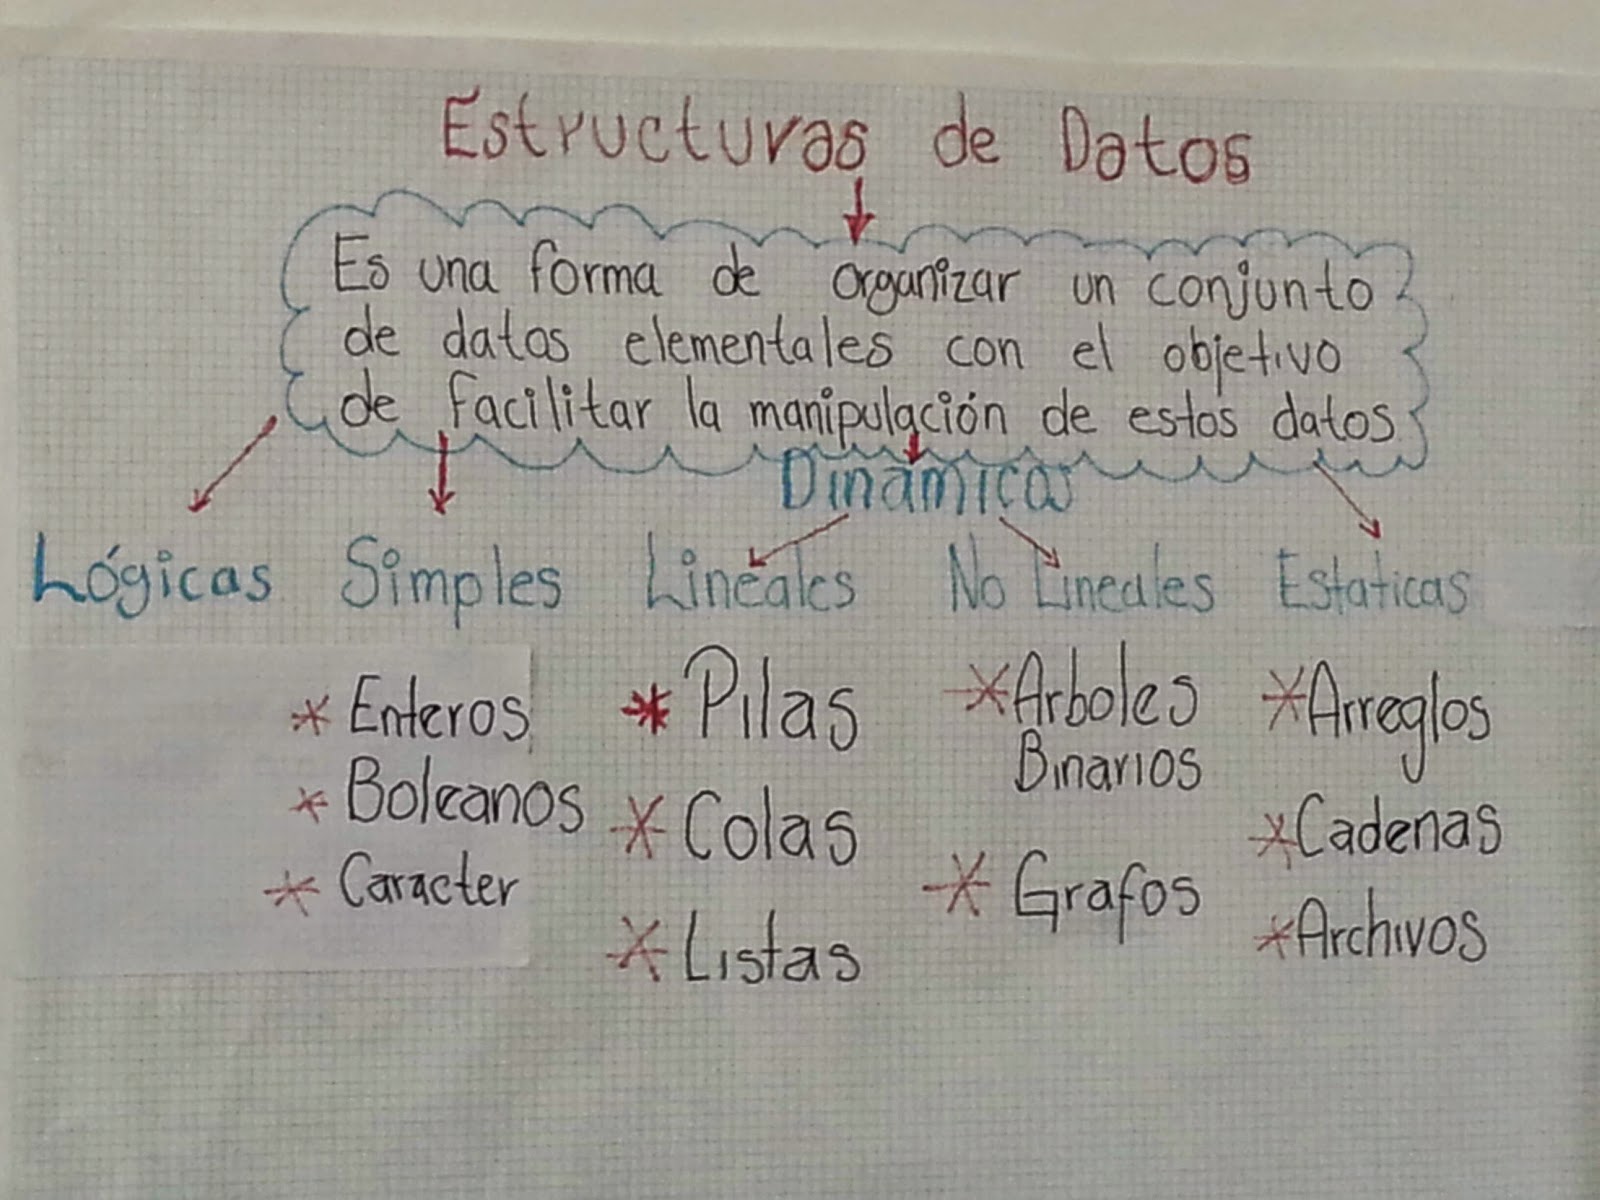 Estructuras de Datos
Es una forma de organizar un conjunto
de datos elementales con el objetivo
de facilitar la manipulación de estos datos
Dinámicas
Lógicas Simples Lineales No Lineales Estaticas
* Enteros
* Boleanos
* Caracter
* Pilas
* Colas
* Listas
* Arboles
Binarios
* Grafos
* Arreglos
* Cadenas
* Archivos